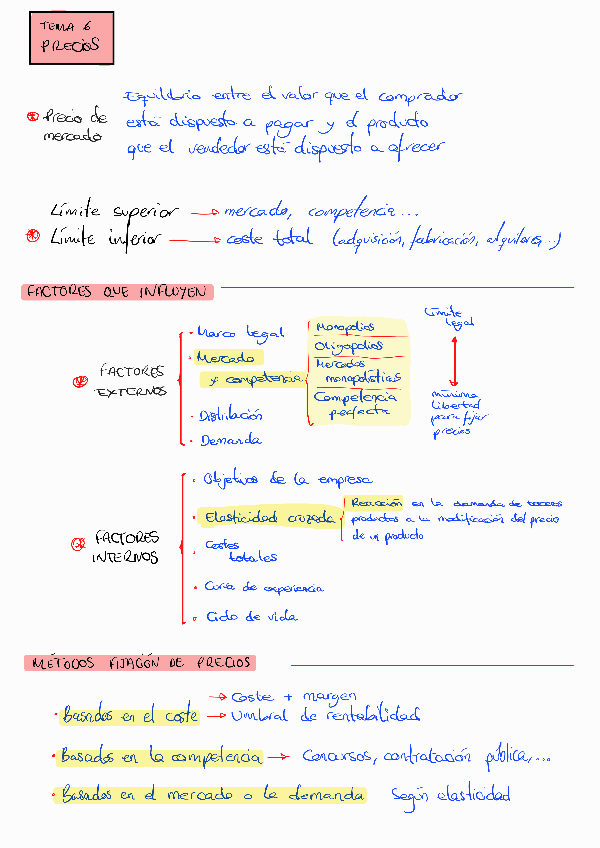 TEMA 6
PRECIOS
Equilibrio entre el valor que el comprador
Precio de está dispuesto a pagar y el producto
mercado que el vendedor está dispuesto a ofrecer
Límite superior → mercado, competencia...
Límite inferior → coste total (adquisición, fabricación, alquileres,...)
FACTORES QUE INFLUYEN
FACTORES
EXTERNOS
· Marco legal
· Mercado
y competencia
Monopolios
Oligopolios
Mercados
monopolísticas
Competencia
perfecta
Límite
legal
mínima
libertad
para fijar
precios
· Distribución
· Demanda
FACTORES
INTERNOS
· Objetivos de la empresa
· Elasticidad cruzada
Reacción en la demanda de terceros
productos a la modificación del precio
de un producto
· Costes
totales
· Curva de experiencia
· Ciclo de vida
MÉTODOS FIJACIÓN DE PRECIOS
→ Coste + margen
· Basados en el coste → Umbral de rentabilidad
· Basados en la competencia → Concursos, contratación pública,...
· Basados en el mercado o la demanda Según elasticidad